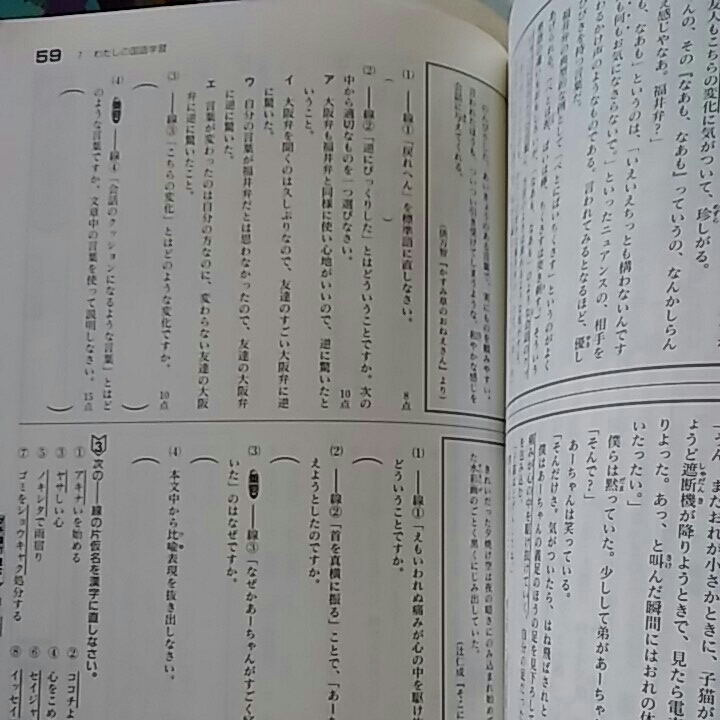 友人もこちらの変化に気がついて、珍しがる。
え感じやなあ。福井弁？」
ん、その『なあも、なあも』っていうの、なんかしらん
も、なあも」というのは、「いえいえちっとも構わないんです
も何もお気になさらないで。」といったニュアンスの、相手を
わるかけ声のようなものである。言われてみるとなるほど、優し
ひびきを持つ言葉だ。
言われたほうも、ついつい引き受けてしまうような、和やかな感じを
会話に与えてくれる。
（俵万智『かすみ草のおねえさん』より）
(1) ――線①「戻れへん」を標準語に直しなさい。 8点
(2) ――線②「逆にびっくりした」とはどういうことですか。次の
中から適切なものを一つ選びなさい。 10点
ア 大阪弁も福井弁と同様に使い心地がいいので、逆に驚いたと
いうこと。
イ 大阪弁を聞くのは久しぶりなので、友達のすごい大阪弁に逆
に驚いた。
ウ 自分の言葉が福井弁だとは思わなかったので、友達の大阪弁
に逆に驚いた。
エ 言葉が変わったのは自分の方なのに、変わらない友達の大阪
弁に逆に驚いたこと。
(3) ――線③「こちらの変化」とはどのような変化ですか。
10点
(4) ――線④「会話のクッションになるような言葉」とはど
のような言葉ですか。文章中の言葉を使って説明しなさい。 15点
59 7 わたしの国語学習
「うん、まだおれが小さかときに、子猫が
ょうど遮断機が降りようときで、見たら電
りよった。あっ、と叫んだ瞬間にはおれの体
いたったい。」
僕らは黙っていた。少しして弟があーちゃ
「そんで？」
あーちゃんは笑っている。
「そんだけさ。気がついたら、はね飛ばされと
僕はあーちゃんの義足のほうの足を見下ろし
きれいだった夕焼け空は夜の暗さにのみ込まれ始め
た水彩画のごとく黒くにじみ出していた。
(1) ――線①「えもいわれぬ痛みが心の中を駆け
どういうことですか。
(2) ――線②「首を真横に振る」ことで、「あー
えようとしたのですか。
(3) ――線③「なぜかあーちゃんがすごく
いた」のはなぜですか。
(4) 本文中から比喩表現を抜き出しなさい。
3 次の――線の片仮名を漢字に直しなさい。
① アキナいを始める
② ココチよ
③ ヤサしい心
④ 心をこめ
⑤ ノキシタで雨宿り
⑥ セイジャ
⑦ ゴミをショウキャク処分する
⑧ イッセイ